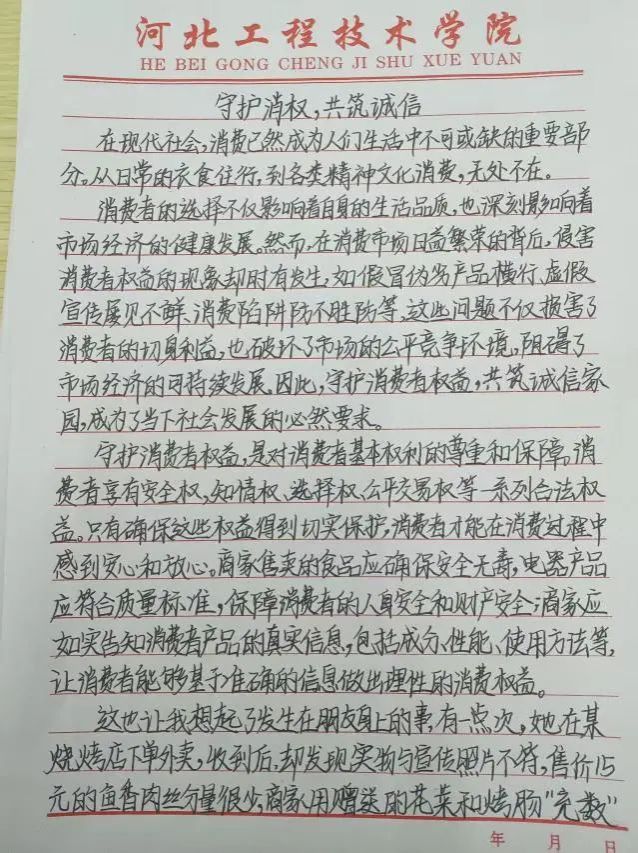 河北工程技术学院
HE BEI GONG CHENG JI SHU XUE YUAN
守护消权，共筑诚信
在现代社会，消费已然成为人们生活中不可或缺的重要部
分。从日常的衣食住行，到各类精神文化消费，无处不在。
消费者的选择不仅影响着自身的生活品质，也深刻影响着
市场经济的健康发展。然而，在消费市场日益繁荣的背后，侵害
消费者权益的现象却时有发生，如假冒伪劣产品横行、虚假
宣传屡见不鲜、消费陷阱防不胜防等，这些问题不仅损害了
消费者的切身利益，也破坏了市场的公平竞争环境，阻碍了
市场经济的可持续发展。因此，守护消费者权益，共筑诚信家
园，成为了当下社会发展的必然要求。
守护消费者权益，是对消费者基本权利的尊重和保障。消
费者享有安全权，知情权、选择权、公平交易权等一系列合法权
益。只有确保这些权益得到切实保护，消费者才能在消费过程中
感到安心和放心。商家售卖的食品应确保安全无毒，电器产品
应符合质量标准，保障消费者的人身安全和财产安全；商家应
如实告知消费者产品的真实信息，包括成分、性能、使用方法等，
让消费者能够基于准确的信息做出理性的消费权益。
这也让我想起了发生在朋友身上的事，有一点次，她在某
烧烤店下单外卖，收到后，却发现实物与宣传照片不符，售价15
元的鱼香肉丝分量很少，商家用赠送的花菜和烤肠“充数”
年 月 日